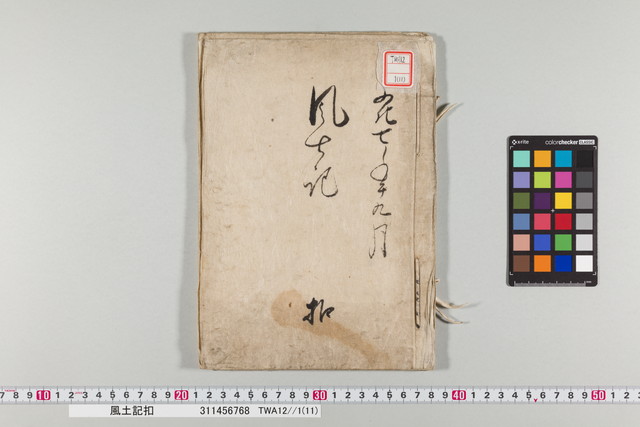 TWA12
x-rite
colorchecker CLASSIC
七年九月
風土記
扣
7 8 9 10 1 2 3 4 5 6 7 8 9 20 1 2 3 4 5 6 7 8 9 30 1 2 3 4 5 6 7 8 9 40 1 2 3 4 5 6 7 8 9 50 1 2 3
風土記扣 311456768 TWA12//1(11)